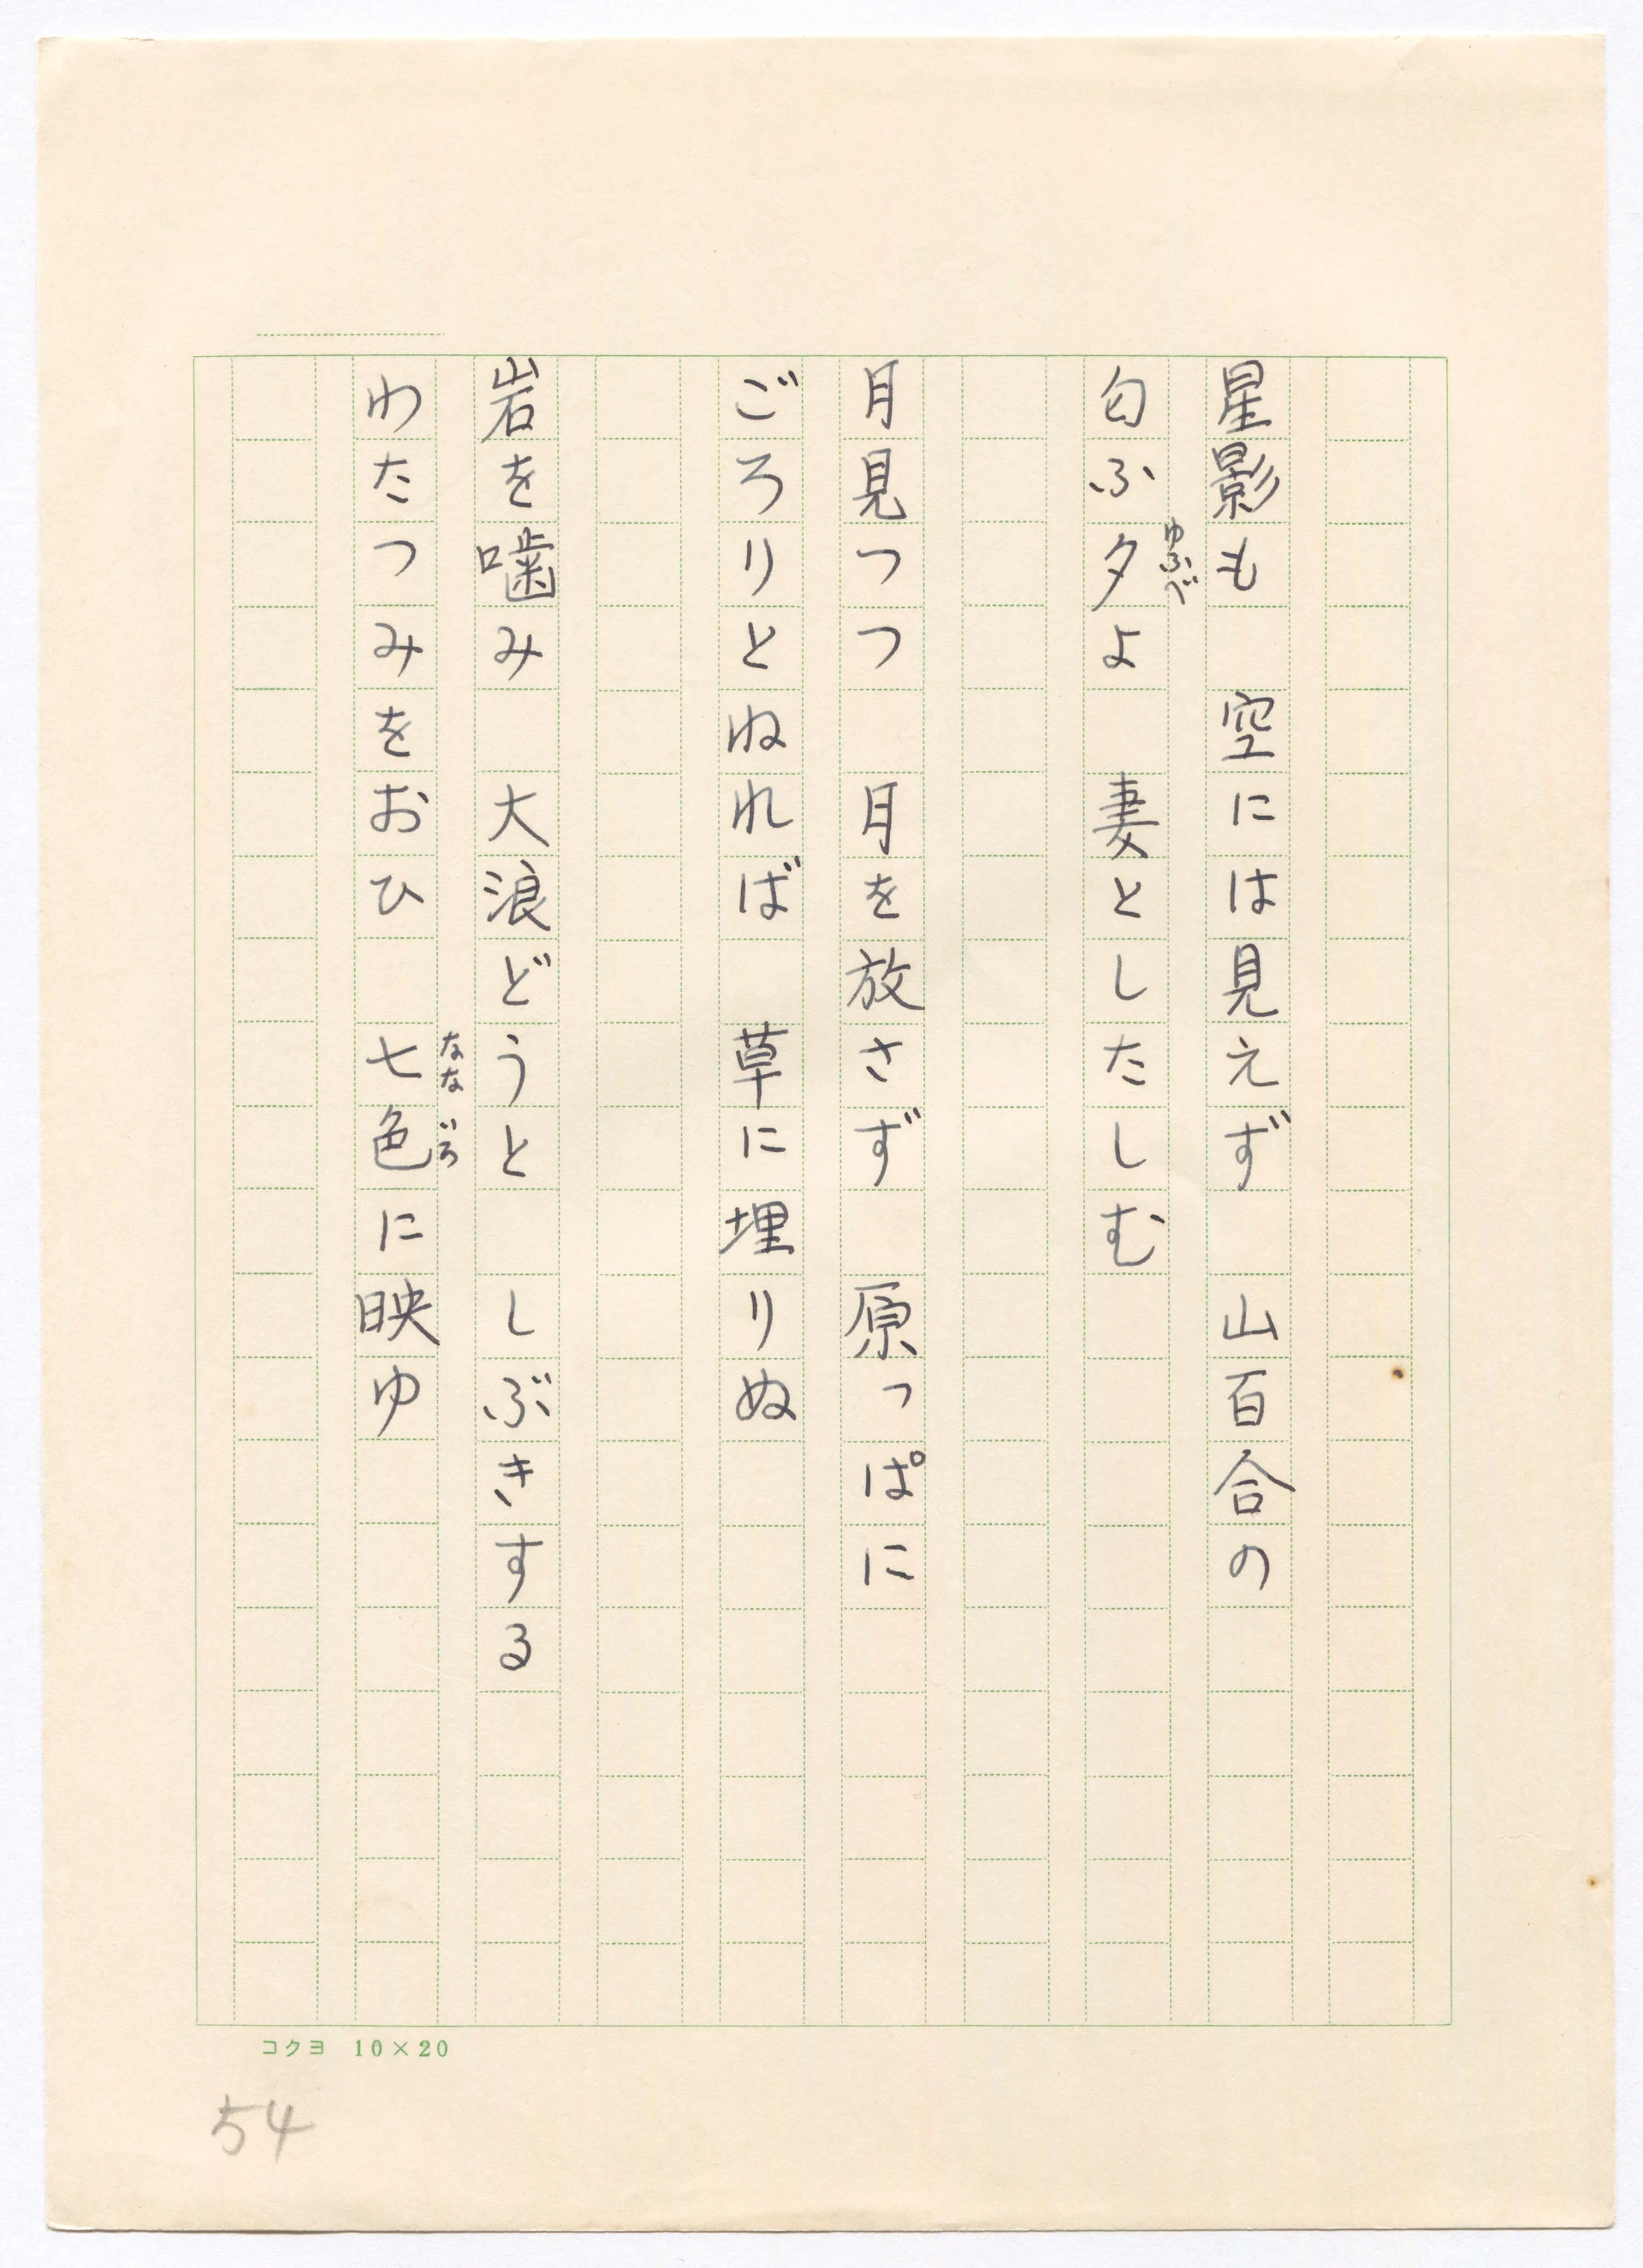 星影も　空には見えず　山百合の
匂ふ夕よ　妻としたしむ
ゆふべ
月見つつ　月を放さず　原っぱに
ごろりとぬれば　草に埋りぬ
岩を噛み　大浪どうと　しぶきする
わたつみをおひ　七色に映ゆ
なないろ
コクヨ 10×20
54